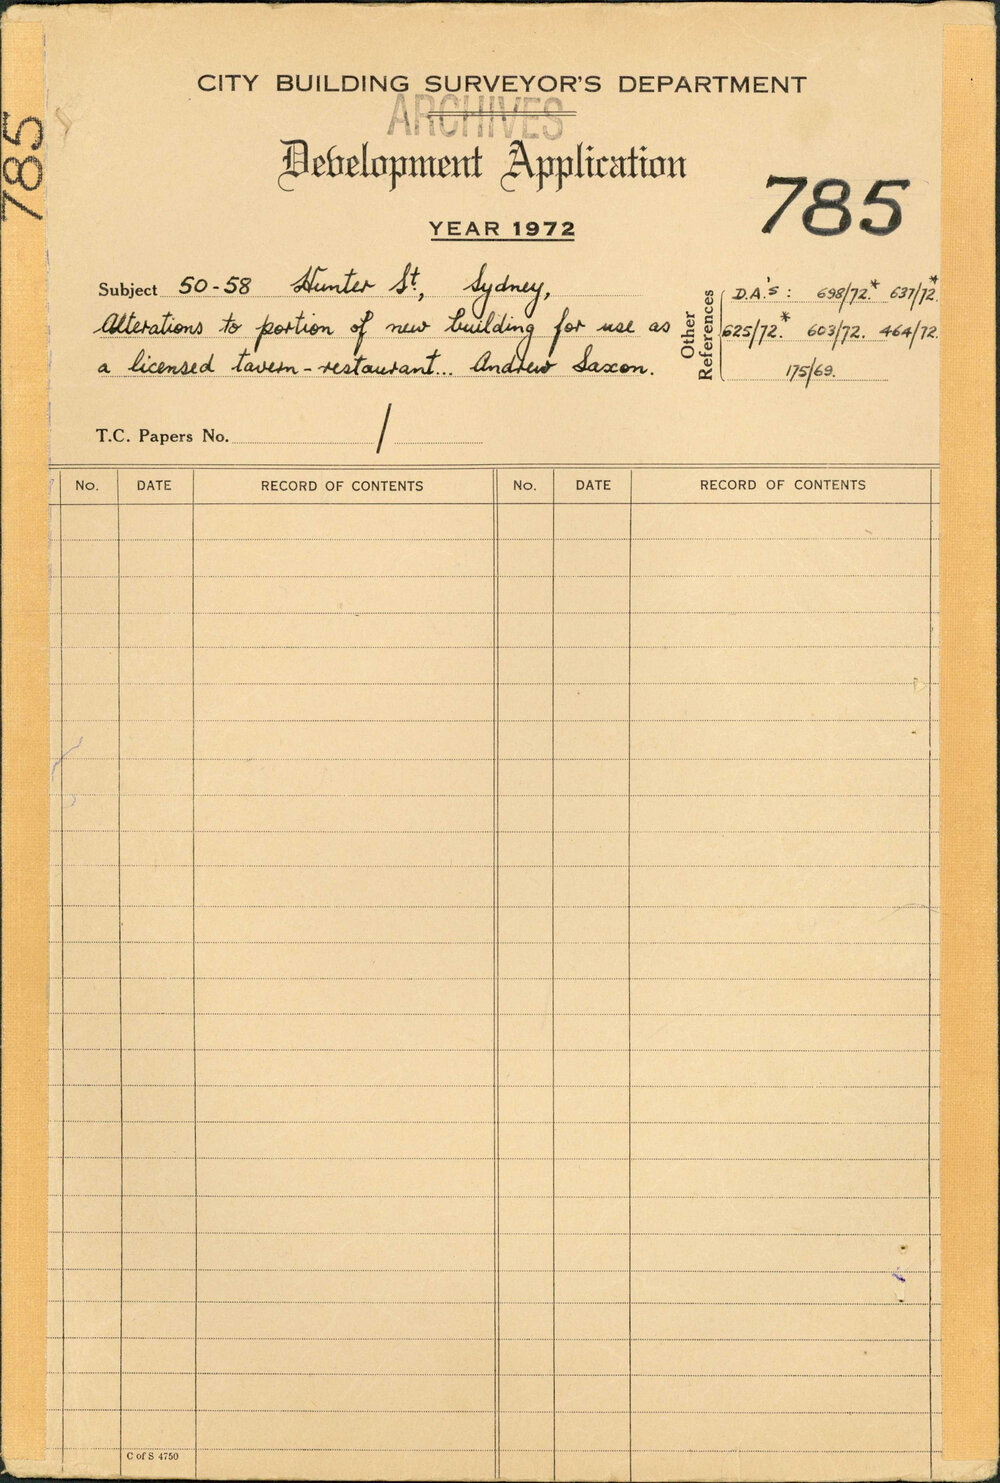 CITY BUILDING SURVEYOR'S DEPARTMENT
ARCHIVES
Development Application
785
785
YEAR 1972
Subject 50-58 Hunter St, Sydney,
Alterations to portion of new building for use as
a licensed tavern-restaurant... Andrew Saxon.
Other References
D.A.'s: 698/72.* 637/72.*
625/72.* 603/72. 464/72.
175/69.
T.C. Papers No. /
No. DATE RECORD OF CONTENTS No. DATE RECORD OF CONTENTS
C of S 4750